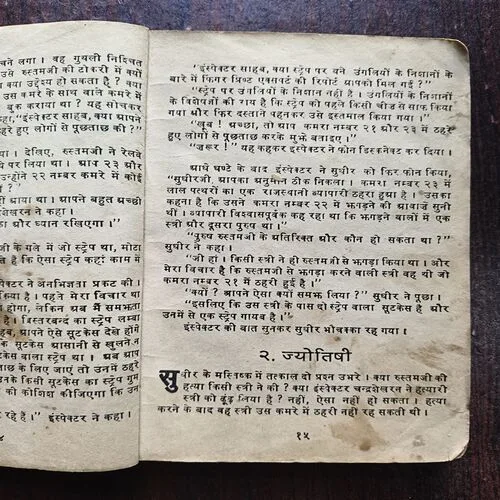 चने लगा। वह गुथली निश्चित
उसे रुस्तमजी की टोकरी में क्यों
क्या उद्देश्य हो सकता है ?
उस कमरे के साथ वाले कमरे में
बुक कराया था ? यह सोचकर
कहा, "इंस्पेक्टर साहब, क्या आपने
हुए लोगों से पूछताछ की ?"
देलिए, रुस्तमजी ने रेलवे
पर लिया था। आप २३ और
उन्होंने २२ नम्बर कमरे में कोई
?"
था। आपने बहुत अच्छी
शेखरन ने कहा।
और ध्यान रखिएगा।"
जी के गले में जो स्ट्रेप था, मोटा
है कि ऐसा स्ट्रेप कहां काम में
इंस्पेक्टर ने अनभिज्ञता प्रकट की।
किया है। पहले मेरा विचार था
होगा, लेकिन अब मैं समझता
है। बिस्तरबन्द का स्ट्रेप लम्बा
साहब, आपने ऐसे सूटकेस देखे होंगे
सूटकेस आसानी से खुले न
सूटकेस वाला स्ट्रेप था। अब आप
ताछ के लिए जाएं तो उनमें ठहरे
उनके किसी सूटकेस का स्ट्रेप गुम
की कोशिश कीजिएगा कि उन
रहे हैं।" इंस्पेक्टर ने कहा।
"इंस्पेक्टर साहब, क्या स्ट्रेप पर बने उंगलियों के निशानों के
बारे में फिंगर प्रिण्ट एक्सपर्ट की रिपोर्ट आपको मिल गई ?"
"स्ट्रेप पर उंगलियों के निशान नहीं है। उंगलियों के निशानों
के विशेषज्ञों की राय है कि स्ट्रेप को पहले किसी चीज से साफ किया
गया और फिर दस्ताने पहनकर उसे इस्तमाल किया गया।"
"खूब ! अच्छा, तो आप कमरा नम्बर २१ और २३ में ठहरे
हुए लोगों से पूछताछ करके मुझे बताइए।"
"जरूर !" यह कहकर इंस्पेक्टर ने फोन डिस्कनेक्ट कर दिया।
आधे घण्टे के बाद इंस्पेक्टर ने सुधीर को फिर फोन किया,
"सुधीरजी, आपका अनुमान ठीक निकला। कमरा नम्बर २३ में
लाल पत्थरों का एक राजस्थानी व्यापारी ठहरा हुआ है। उसका
कहना है कि उसने कमरा नम्बर २२ में झगड़े की आवाजें सुनी
थीं। व्यापारी विश्वासपूर्वक कह रहा था कि झगड़ने वालों में एक
स्त्री और दूसरा पुरुष था।"
"पुरुष रुस्तमजी के अतिरिक्त और कौन हो सकता था ?"
सुधीर ने कहा।
"जी हां। किसी स्त्री ने ही रुस्तमजी से झगड़ा किया था। और
मेरा विचार है कि रुस्तमजी से झगड़ा करने वाली स्त्री वह थी जो
कमरा नम्बर २१ में ठहरी हुई है।"
"क्यों ? आपने ऐसा क्यों समझ लिया ?" सुधीर ने पूछा।
"इसलिए कि उस स्त्री के पास दो स्ट्रेप वाला सूटकेस है और
उनमें से एक स्ट्रेप गायब है।"
इंस्पेक्टर की बात सुनकर सुधीर भौंचक्का रह गया।
२. ज्योतिषी
सुधीर के मस्तिष्क में तत्काल दो प्रश्न उभरे। क्या रुस्तमजी की
हत्या किसी स्त्री ने की ? क्या इंस्पेक्टर चन्द्रशेखरन ने हत्यारी
स्त्री को ढूंढ़ लिया है ? नहीं, ऐसा नहीं हो सकता। हत्या
करने के बाद वह स्त्री उस कमरे में ठहरी नहीं रह सकती थी।
१५